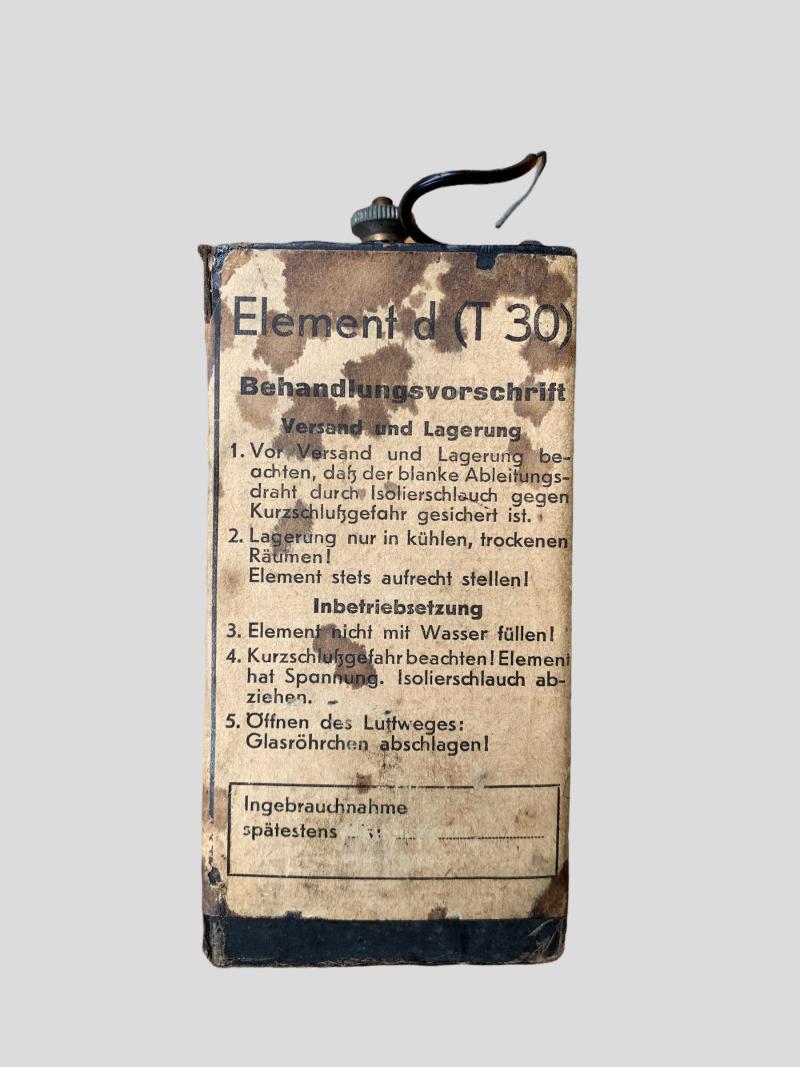 Element d (T 30)
Behandlungsvorschrift
Versand und Lagerung
1. Vor Versand und Lagerung be-
achten, daß der blanke Ableitungs-
draht durch Isolierschlauch gegen
Kurzschlußgefahr gesichert ist.
2. Lagerung nur in kühlen, trockenen
Räumen!
Element stets aufrecht stellen!
Inbetriebsetzung
3. Element nicht mit Wasser füllen!
4. Kurzschlußgefahr beachten! Element
hat Spannung. Isolierschlauch ab-
ziehen.
5. Öffnen des Luftweges:
Glasröhrchen abschlagen!
Ingebrauchnahme
spätestens